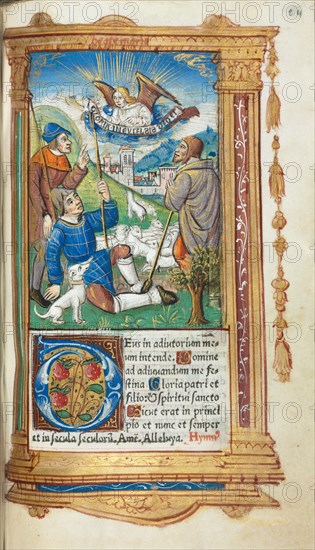 GLORIA IN EXCELSIS DEO
Eus in adiutorium me
um intende. Domine
ad adiuuandum me fe
stina. Gloria patri et
filio: & spiritui sancto
Sicut erat in princi
pio et nunc et semper
et in secula seculorū. Amē. Alleluya. Hymn